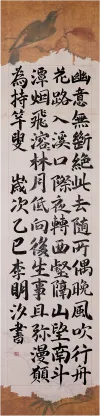 幽意無斷絕此去隨所偶晚風吹行舟
花路入溪口際夜轉西壑隔山望南斗
潭烟飛溶林月低向後生事且弥漫願
為持竿叟 歲次乙巳李明汐書